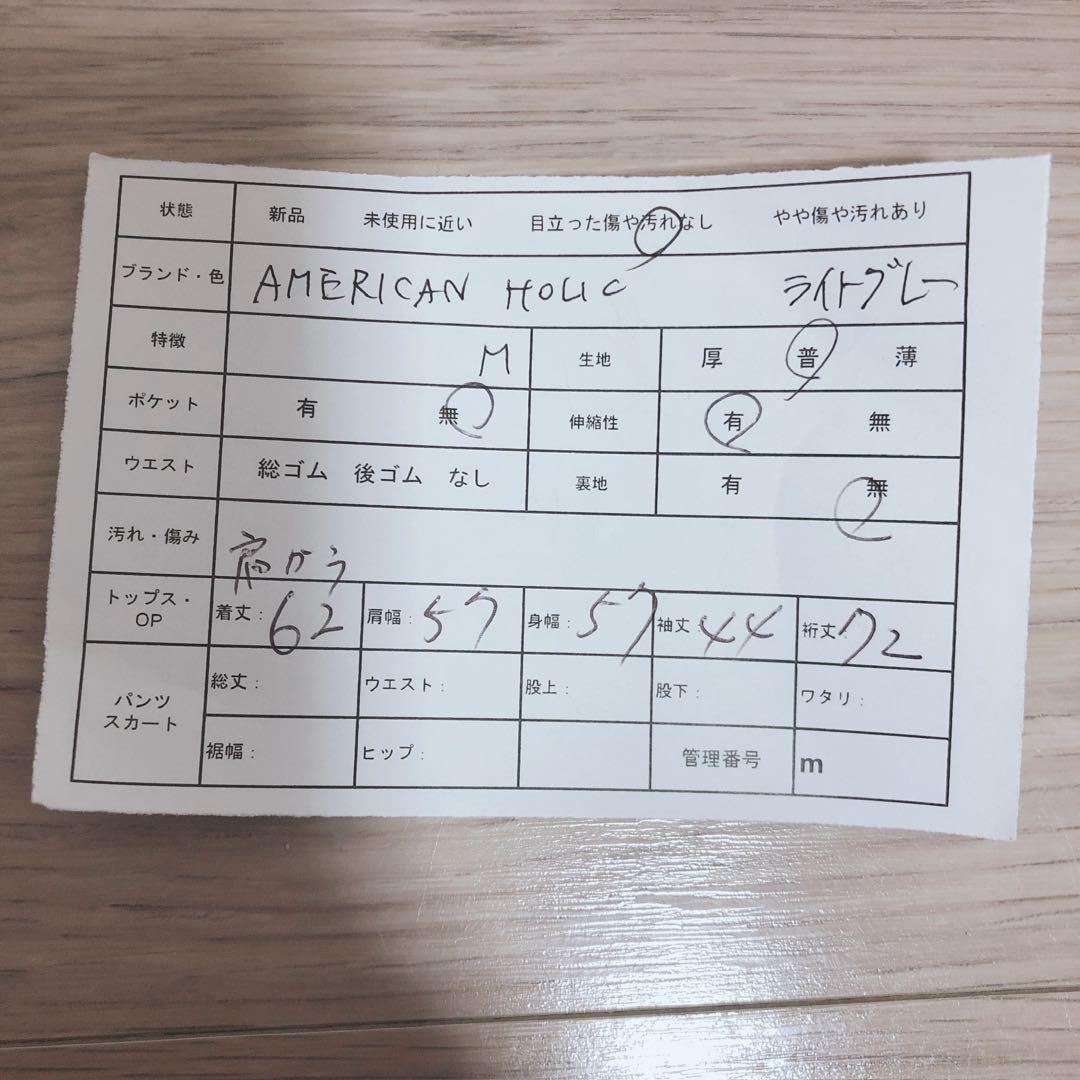 状態 新品 未使用に近い 目立った傷や汚れなし やや傷や汚れあり
ブランド・色 AMERICAN HOLIC ライトグレー
特徴 M 生地 厚 普 薄
ポケット 有 無 伸縮性 有 無
ウエスト 総ゴム 後ゴム なし 裏地 有 無
汚れ・傷み 肩から
トップス・OP 着丈：62 肩幅：57 身幅：57 袖丈：44 裄丈 72
パンツ スカート 総丈： ウエスト： 股上： 股下： ワタリ：
裾幅： ヒップ： 管理番号 m